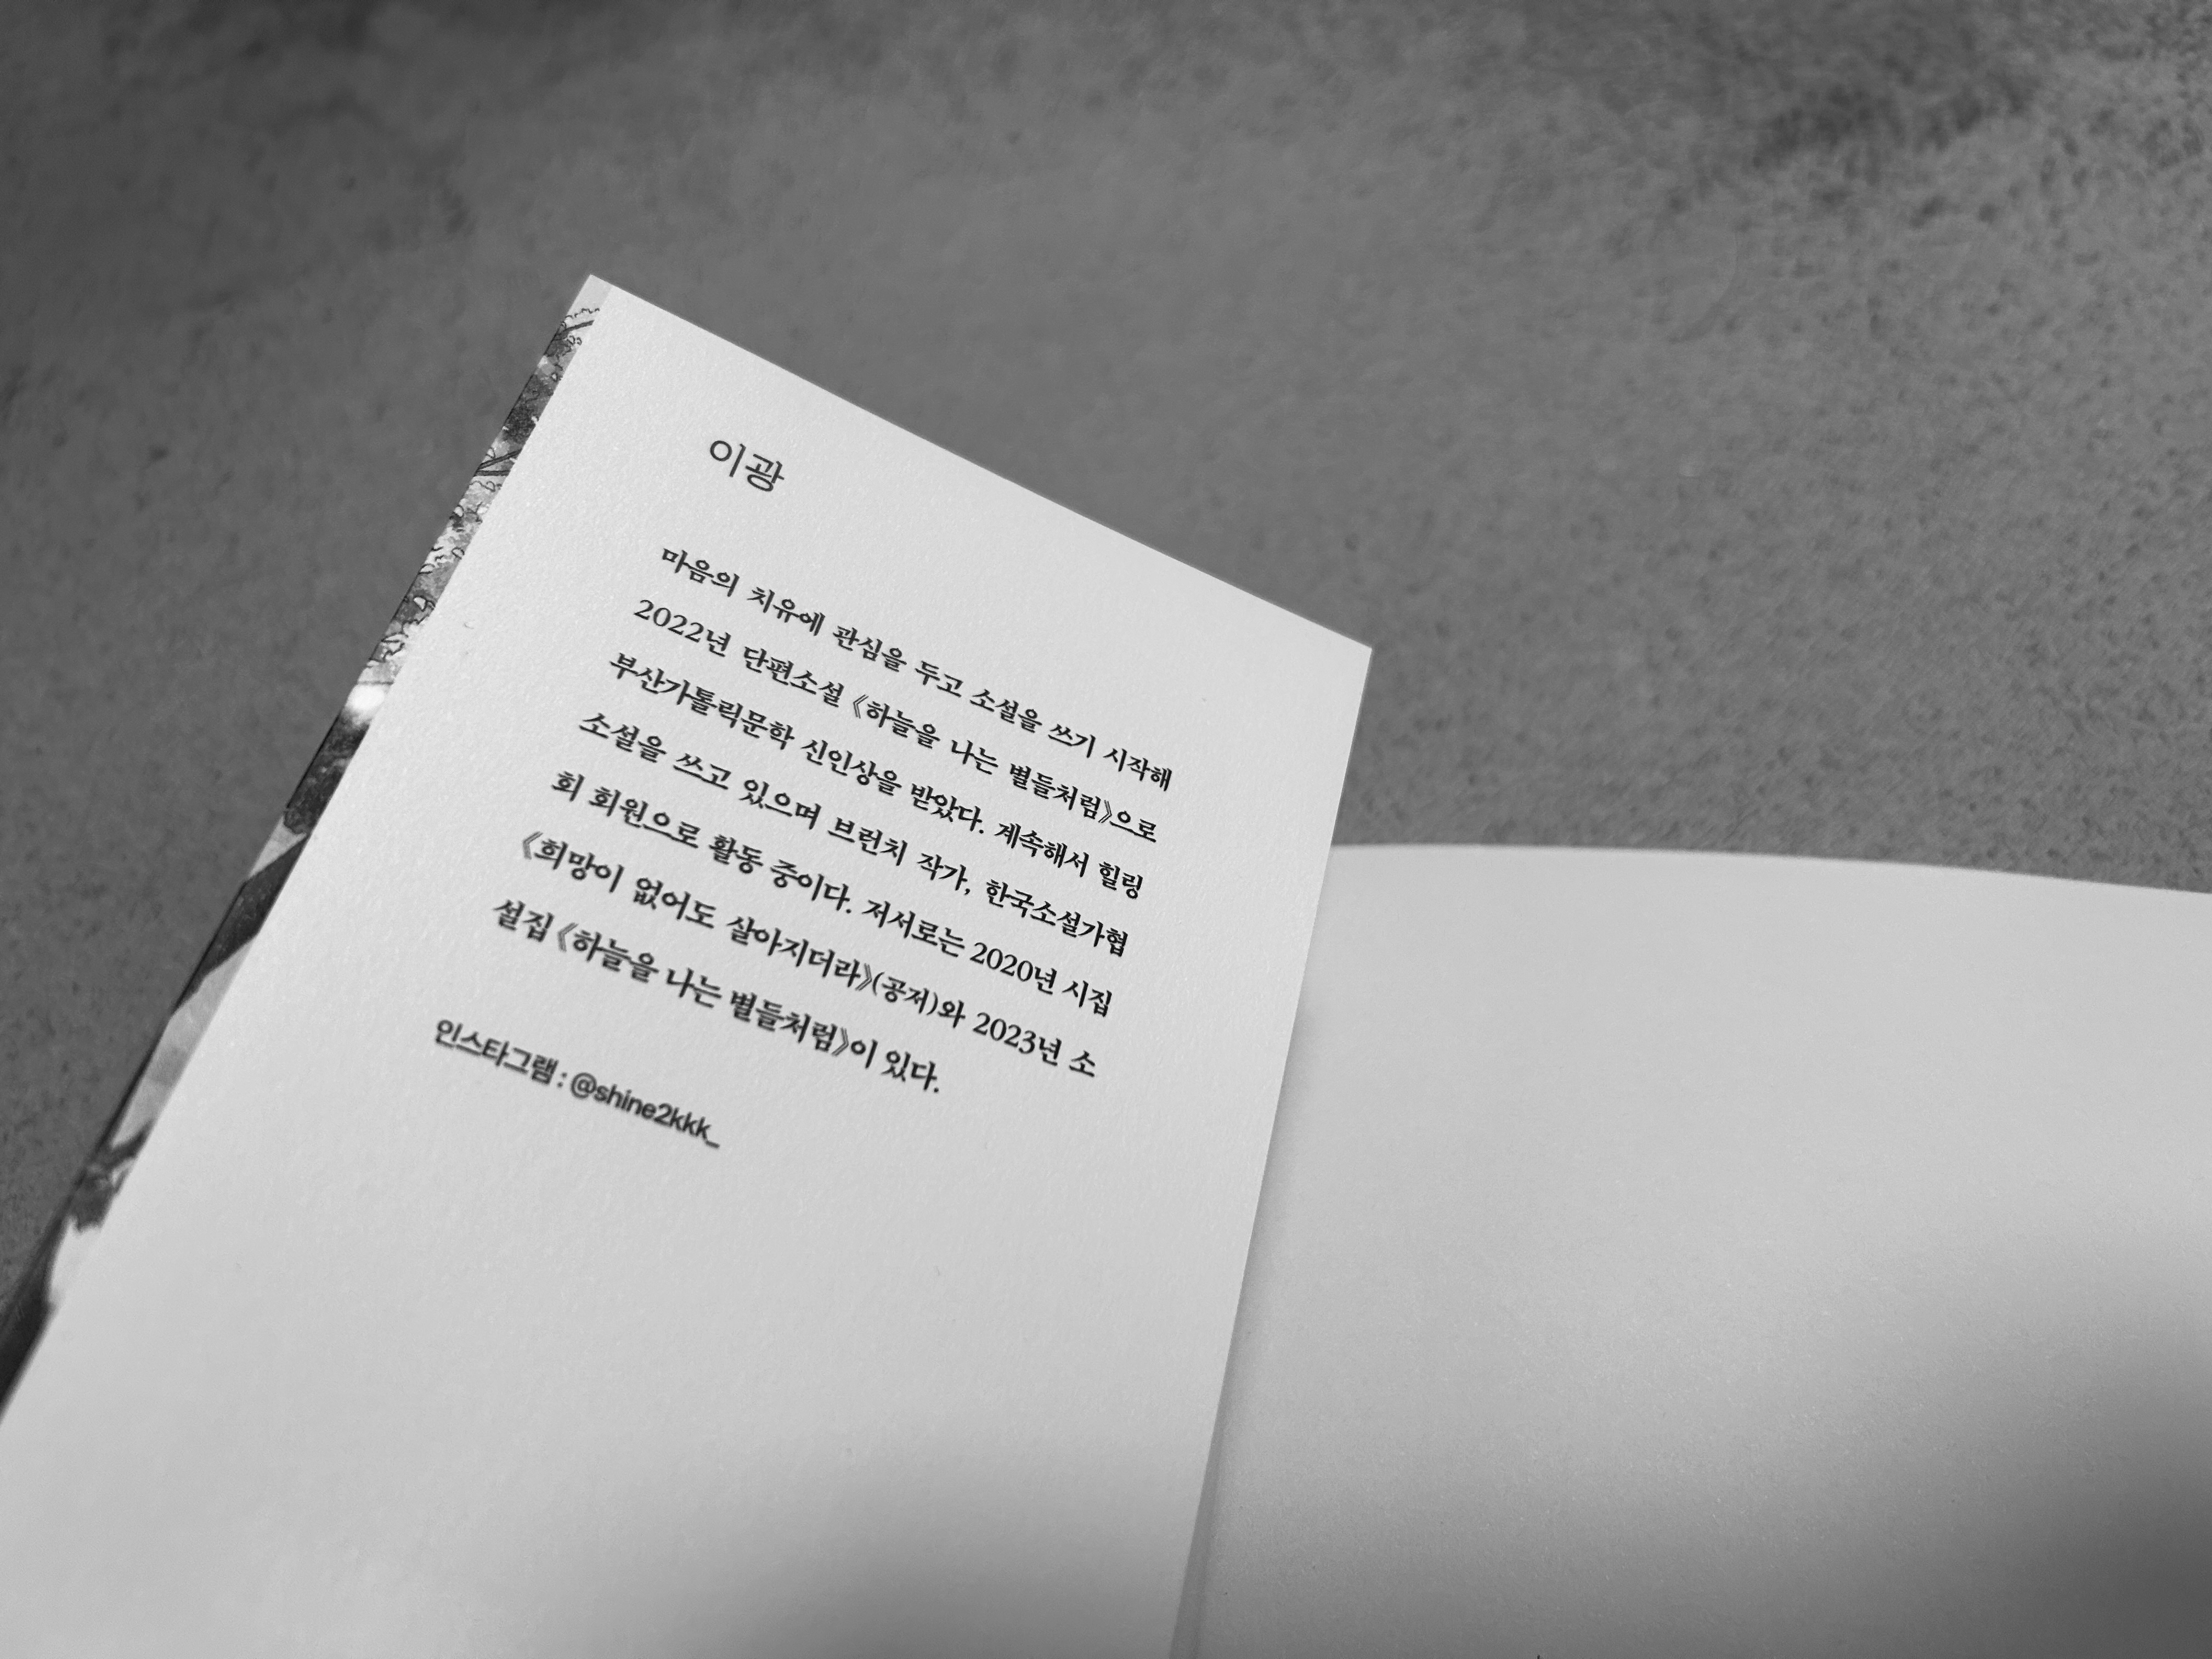 이광
마음의 치유에 관심을 두고 소설을 쓰기 시작해
2022년 단편소설 《하늘을 나는 별들처럼》으로
부산가톨릭문학 신인상을 받았다. 계속해서 힐링
소설을 쓰고 있으며 브런치 작가, 한국소설가협
회 회원으로 활동 중이다. 저서로는 2020년 시집
《희망이 없어도 살아지더라》(공저)와 2023년 소
설집 《하늘을 나는 별들처럼》이 있다.
인스타그램 : @shine2kkk_